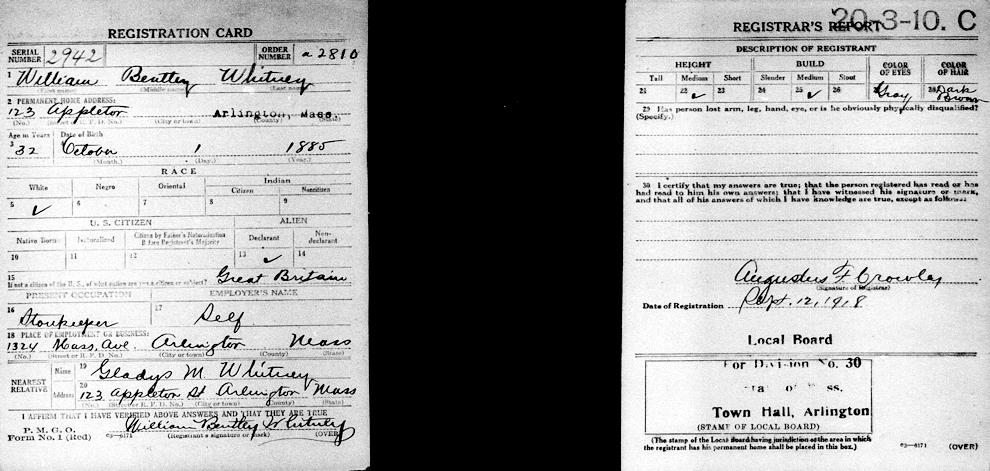 REGISTRATION CARD
SERIAL NUMBER 2942 ORDER NUMBER a 2810
1 William Bentley Whitney
(First name) (Middle name) (Last name)
2 PERMANENT HOME ADDRESS:
123 Appleton Arlington, Mass.
(No.) (Street or R. F. D. No.) (City or town) (County) (State)
Age in Years Date of Birth
3 32 October 1 1885
(Month.) (Day.) (Year.)
RACE
White Negro Oriental Indian
Citizen Noncitizen
5 ✓ 6 7 8 9
U. S. CITIZEN ALIEN
Native Born Naturalized Citizen by Father's Naturalization Before Registrant's Majority Declarant Non-declarant
10 11 12 13 ✓ 14
15 Great Britain
If not a citizen of the U. S., of what nation are you a citizen or subject?
PRESENT OCCUPATION EMPLOYER'S NAME
16 Storekeeper 17 Self
18 PLACE OF EMPLOYMENT OR BUSINESS:
1324 Mass. Ave. Arlington Mass
(No.) (Street or R. F. D. No.) (City or town) (County) (State)
NEAREST RELATIVE Name 19 Gladys M Whitney
Address 20 123 Appleton St Arlington Mass
(No.) (Street or R. F. D. No.) (City or town) (County) (State)
I AFFIRM THAT I HAVE VERIFIED ABOVE ANSWERS AND THAT THEY ARE TRUE
P. M. G. O.
Form No. 1 (Red) 03—6171 William Bentley Whitney
(Registrant's signature or mark) (OVER)
20-3-10. C
REGISTRAR'S REPORT
DESCRIPTION OF REGISTRANT
HEIGHT BUILD COLOR OF EYES COLOR OF HAIR
Tall Medium Short Slender Medium Stout
21 22 ✓ 23 24 25 ✓ 26 27 Gray 28 Dark Brown
29 Has person lost arm, leg, hand, eye, or is he obviously physically disqualified?
(Specify.)
30 I certify that my answers are true; that the person registered has read or has
had read to him his own answers; that I have witnessed his signature or mark,
and that all of his answers of which I have knowledge are true, except as follows:
Augustus F Crowley
(Signature of Registrar)
Date of Registration Sept. 12, 1918
Local Board
For Division No. 30
Town Hall, Arlington
(STAMP OF LOCAL BOARD)
(The stamp of the Local Board having jurisdiction of the area in which
the registrant has his permanent home shall be placed in this box.)
03—6171 (OVER)